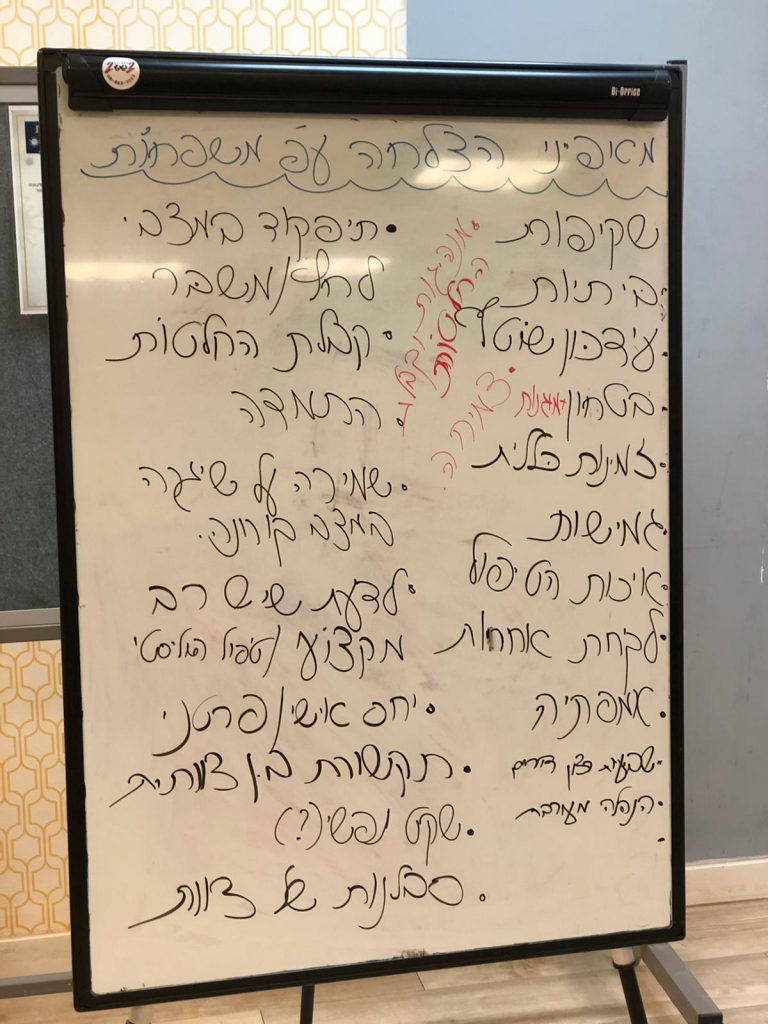 מאפייני הצלחה עפ משפחות
שקיפות
ביתיות
עידכון שוטף
בטחון מוגנות
זמינות כללית
גמישות
איכות הטיפול
לקיחת אחריות
אמפתיה
שביעות רצון דיירים
הנהלה מעורבת
מנהיגות וקבלת
החלטות
צמיחה
תיפקוד במצבי
לחץ/משבר
קבלת החלטות
התמדה
שמירה על שיגרה
במצב קורונה
לדעת שיש רב
מקצועי/טיפול הוליסטי
יחס אישי/פרטני
תקשורת בין צוותית
שקט נפשי (?)
סבלנות של צוות
Bi-Office